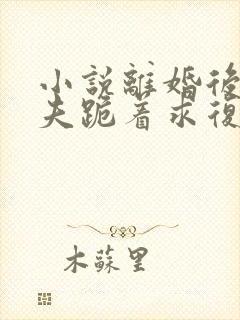 小說離婚後
夫跪着求復
木蘇里